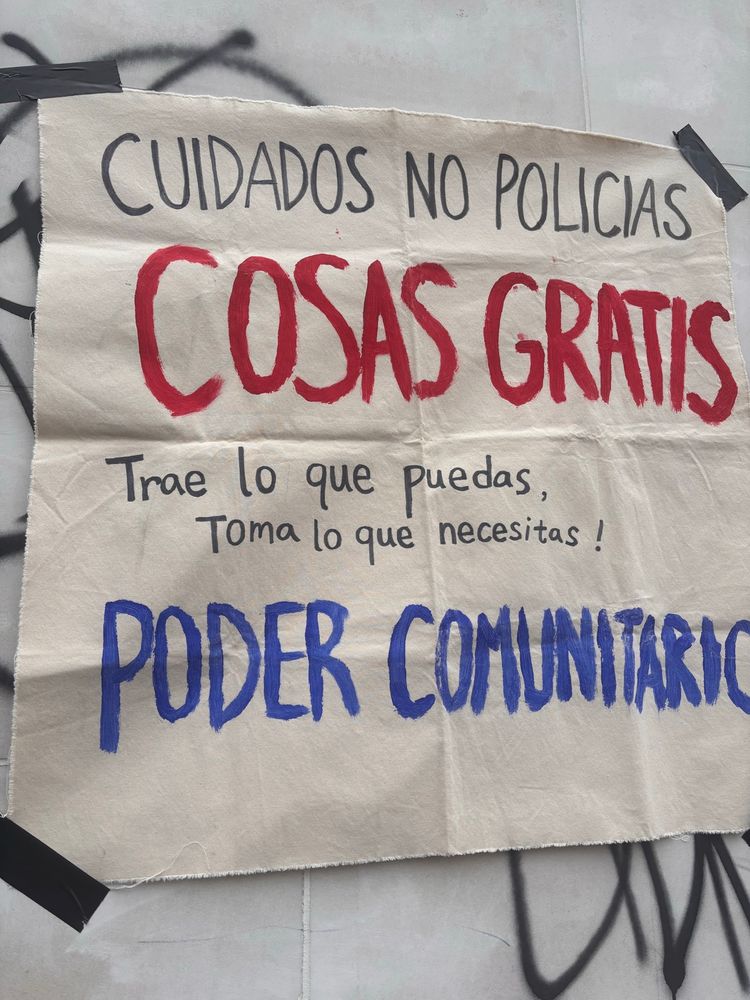 CUIDADOS NO POLICIAS
COSAS GRATIS
Trae lo que puedas,
Toma lo que necesitas!
PODER COMUNITARIO